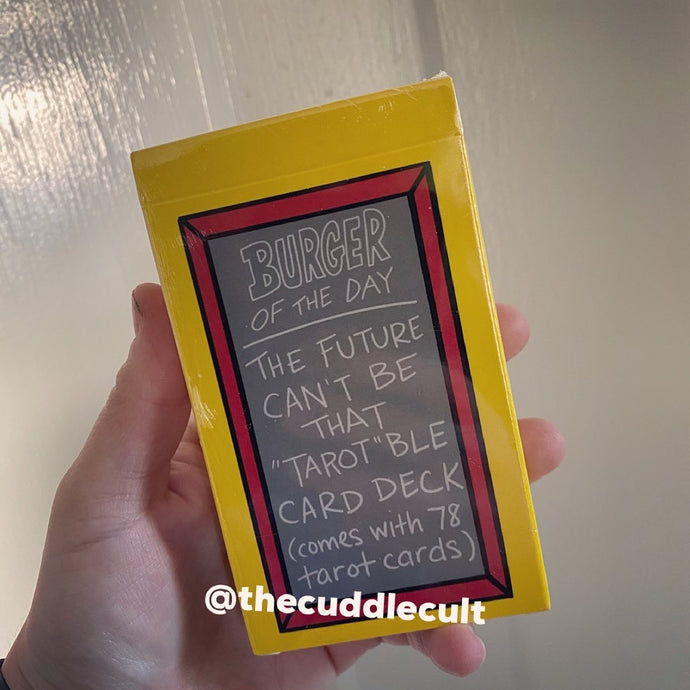 BURGER
OF THE DAY
THE FUTURE
CAN'T BE
THAT
"TAROT"BLE
CARD DECK
(comes with 78
tarot cards)
@thecuddlecult